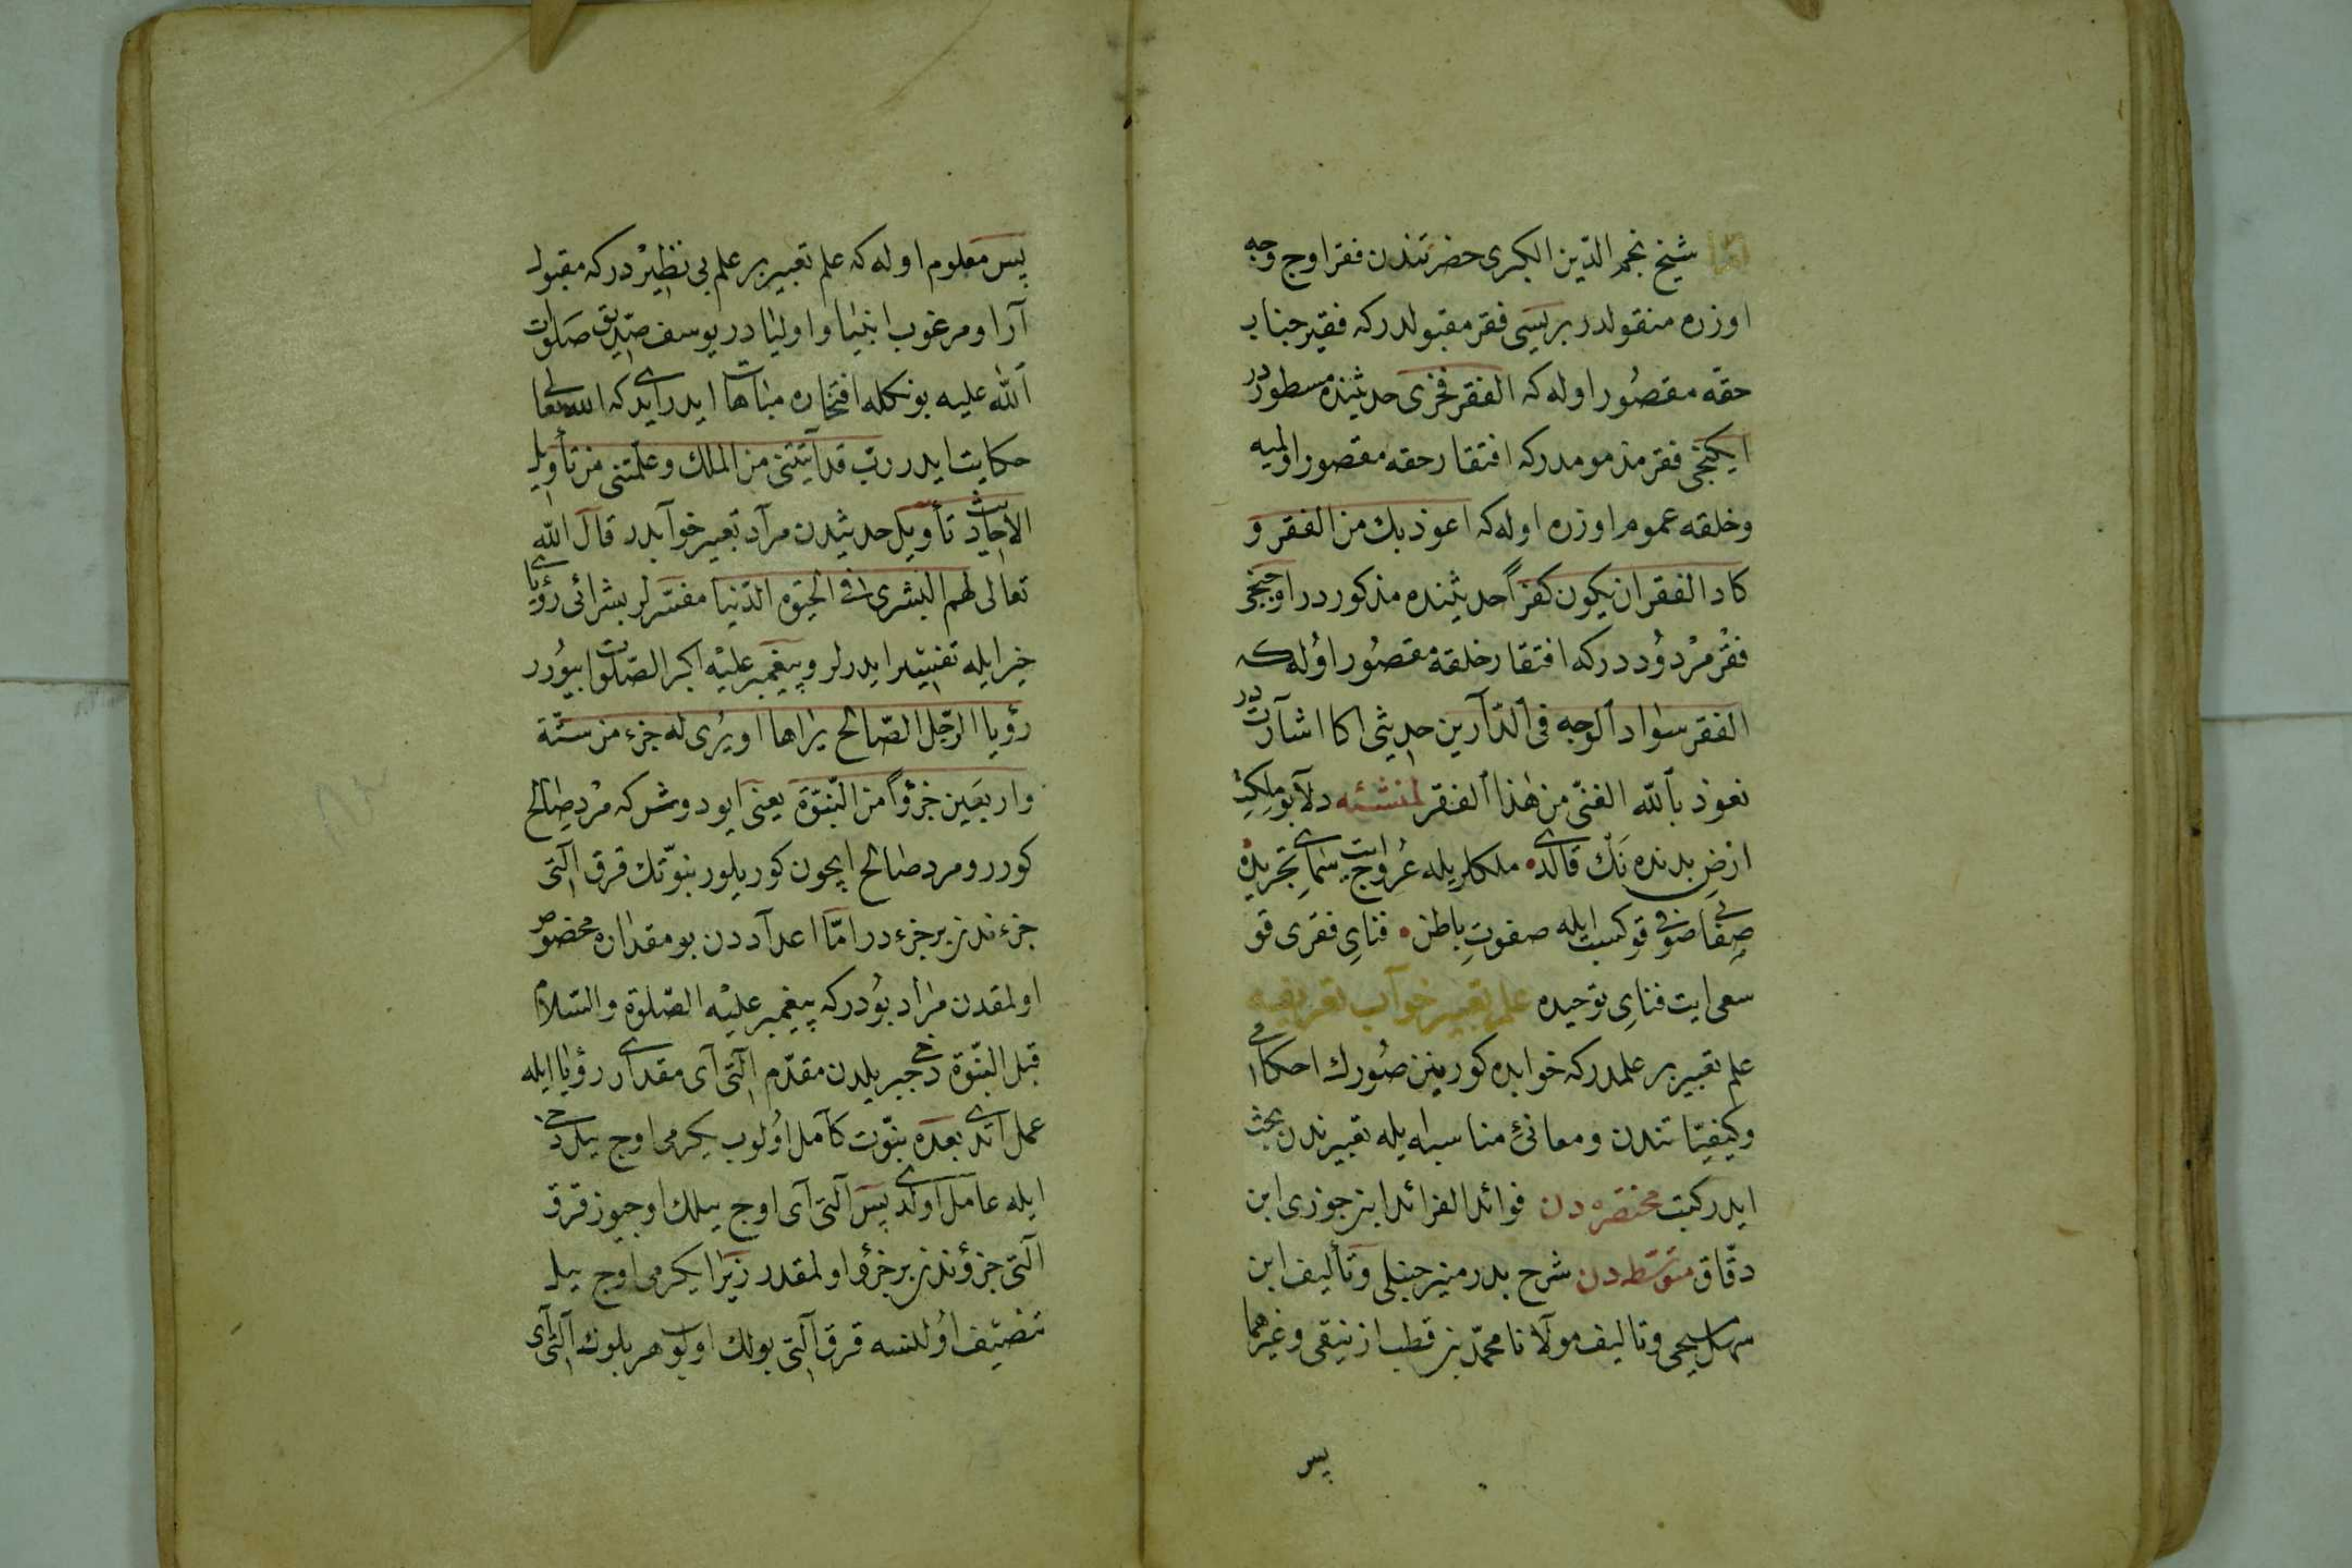 شیخ نجم الدّین الکبری حضرتندن فقر اوج وجه
اوزره منقولدر بریسی فقر مقبولدر که فقیر جناب
حقّه مقصُور اوله که الفقر فخری حدیثنده مسطوردر
ایکنجی فقر مذمومدر که افتقار حقه مقصور اولمیه
وخلقه عموم اوزره اوله که اعوذ بك من الفقر و
کاد الفقر ان یکون کفرًا حدیثنده مذکوردر اوجنجی
فقْر مرْدوُددر که افتقار خلقه مقصُور اوُله که
الفقر سواد الوجه فی الدّارین حدیثی اکا اشارتدر
نعوذ بالله الغنیّ من هٰذا الفقر لمنشئه دلا بو ملکتِ
ارضِ بدنده نَك قالدی ملکلریله عرُوج ایت سمایِ تجریده
صفا صوفی قو کسبت ایله صفوتِ باطن فنایِ فقری قو
سعی ایت فنایِ توحیده علم تعبیر خواب تعریفیه
علم تعبیر بر علمدر که خوابده کورینن صُورك احکامی
وکیفیّاتندن ومعانیٔ مناسبه ایله تعبیرندن بحث
ایدر کتب مختصره دن فوائد الفرائد ابن جوزی ابن
دقّاق متوسّطه دن شرح بدر منیر حنبلی وتألیف ابن
سهل مسیحی وتالیف مولانا محمّد بن قطب ازنیقی وغیرهما
پس
پس معلوم اوله که علم تعبیر بر علم بی نظیرْدر که مقبول
آرا و مرغوب انبیا و اولیادر یوسف صدّیق صلوات
الله علیه بونکله افتخار ومباهات ایدر ایدی که الله تعالی
حکایت ایدر ربّ قد آتیتنی من الملك وعلّمتنی من تأویل
الاحادیث تأویل حدیثدن مراد تعبیر خوابدر قال الله
تعالی لهم البشری فی الحیوة الدّنیا مفسّرلر بشرائی رؤیای
خیر ایله تفسیر ایدرلر وپیغمبر علیْه اکبر الصّلوات بیوُرر
رؤیا الرّجل الصّالح یراها او یُری له جزء من ستّة
واربعین جزؤًا من النبوّة یعنی ایو دوش که مرْد صالح
کورر و مرد صالح ایچون کوریلور نبوّتك قرق التی
جزءندن بر جزءدر امّا اعداددن بو مقداره مخصوص
اولمقدن مراد بوُدر که پیغمبر علیْه الصّلوة والسّلام
قبل النبوّة دخی جبریلدن مقدّم التی آی مقداری رؤیا ایله
عمل اتدی بعده نبوّت کامل اوُلوب یکرمی اوج ییل دخی
ایله عامل اولدی پس التی آی اوج ییلك اوجیوز قرق
التی جزؤندن بر جزؤ اولمقدر زیرا یکرمی اوج ییل
تنصیف اوُلنسه قرق التی بولك اولوب هر بلوك التی آی